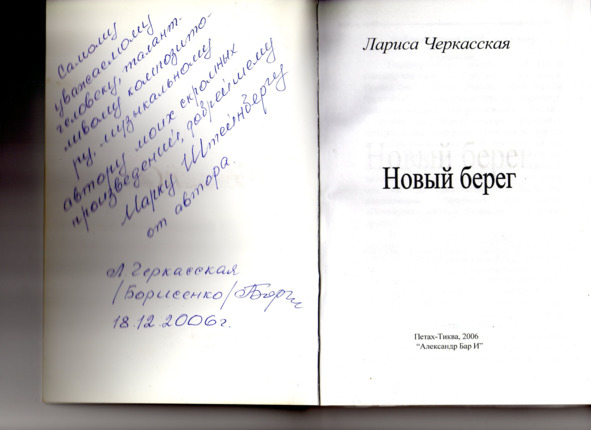 Самому
уважаемому
человеку, талант-
ливому композито-
ру, музыкальному
автору моих скромных
произведений, добрейшему
Марку Штейнбергу
от автора.
Л. Черкасская
/Борисенко/
18.12.2006г.
Лариса Черкасская
Новый берег
Петах-Тиква, 2006
"Александр Бар И"